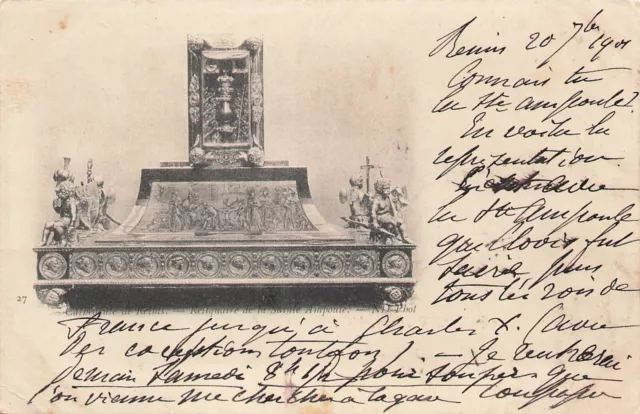 Reims 20 7bre 1901
Connais tu
la Ste ampoule?
En voilà la
représentation.
C'est avec
la Ste Ampoule
que Clovis fut
sacré, puis
tous les rois de
27
Cathédrale de Reims. — Reliquaire de la Sainte Ampoule. ND Phot
France jusqu'à Charles X. (avec
des exceptions toutefois) — Je rentrerai
demain Samedi pour souper que
l'on vienne me chercher à la gare